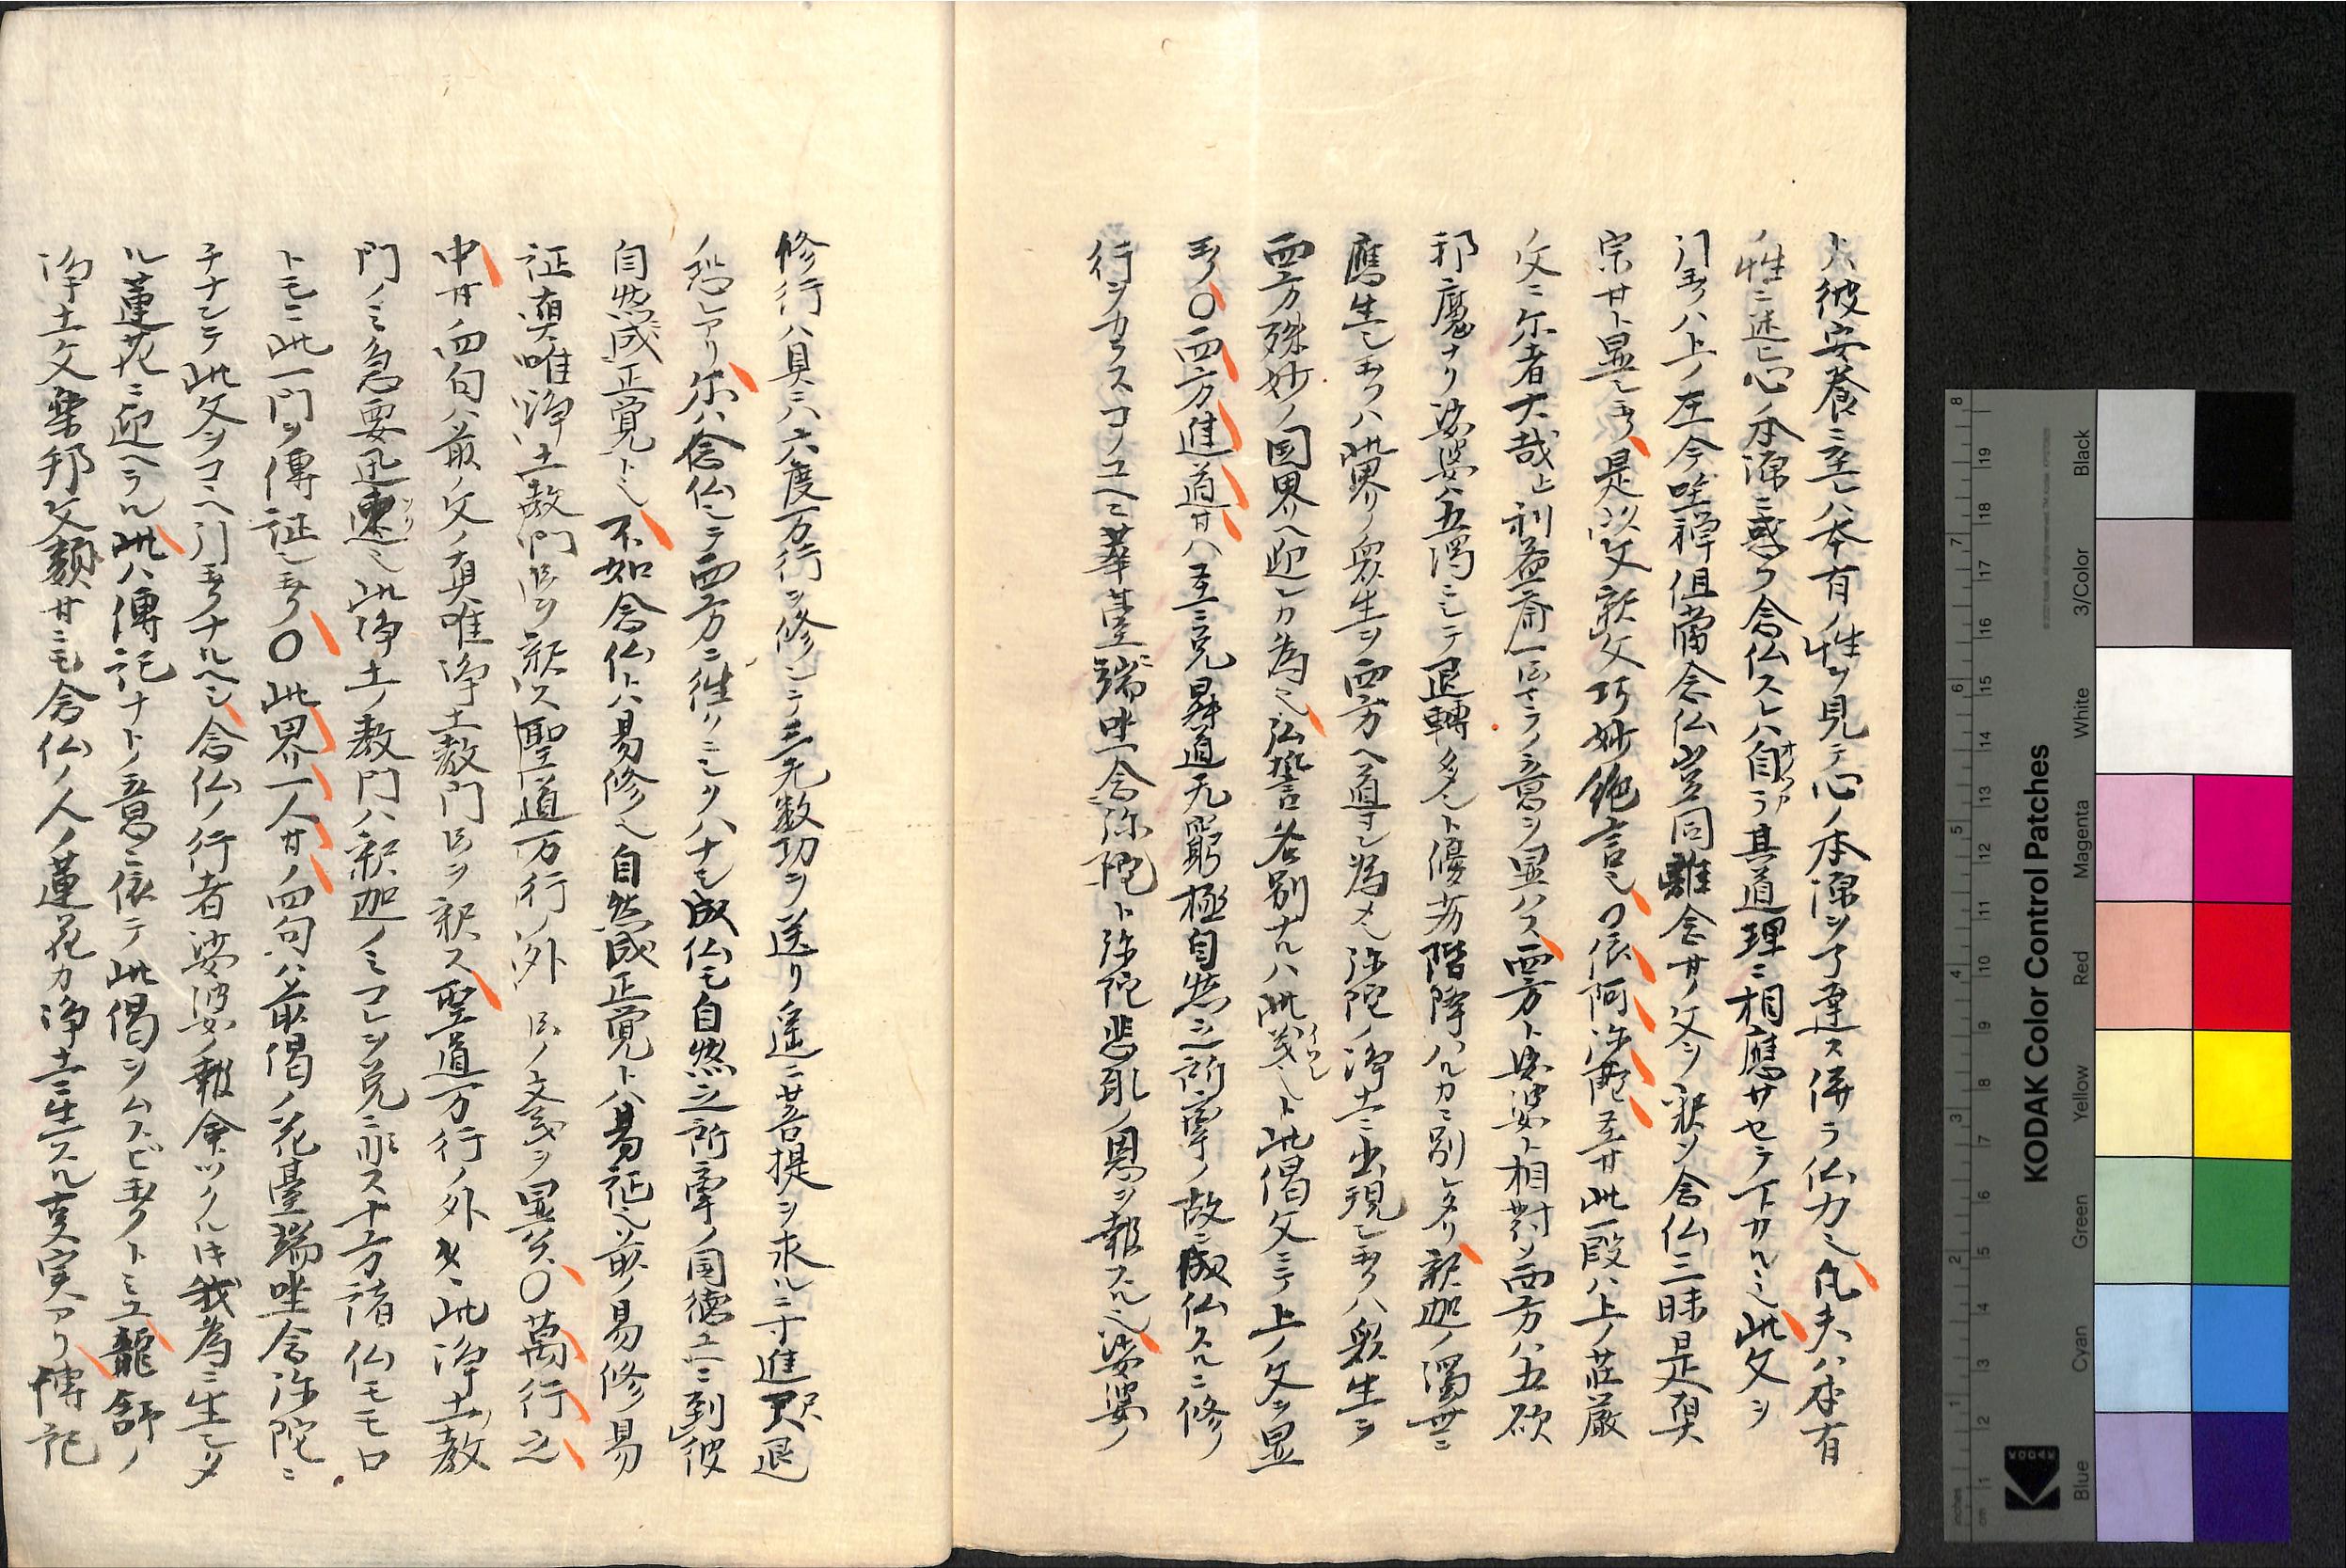 ト彼安養ニ至レハ本有ノ性ヲ見テ心ノ本源ヲ了達ス併ラ仏力也凡夫ハ本有
ノ性ニ迷ヒ心ノ本源ニ惑フ念仏スレハ自ラ其道理ニ相應サセテ下サルヽ也此文ヲ
引玉フハ上ノ在今坐禅但當念仏豈同離念サノ文ヲ釈シ念仏三昧是真
宗サト显シ玉フ是以文釈父巧妙絶言也〇依阿弥陀至サ此一段ハ上ノ荘厳
ノ文ニ尓者大哉上利益斎一ノ意ヲ显ハス西方ト娑婆ト相對シ西方ハ五欲
邪魔ナリ娑婆ハ五濁ニシテ退轉多シト優劣階降ハルカニ別レタリ釈迦ノ濁世ニ
應生シ玉フハ此界ノ衆生ヲ西方ヘ導シ為メ弥陀ノ浄土ニ出現シ玉フハ衆生ヲ
西方殊妙ノ国界ヘ迎シカ為也弘誓各別ナルハ此義也ト此偈文ニテ上ノ文ヲ显
玉フ〇西方進道サハ至ニ説昇道无窮極自然之所牽ノ故ニ成仏スルニ修
行ヲカラスコノユヘニ華臺端坐念弥陀ト弥陀悲引ノ恩ヲ報スル也娑婆ノ
修行ハ具ニ六度万行ヲ修シテ三无数功ヲ送リ遥ニ菩提ヲ求ルニ寸進尺退
ノ恐レアリ尓ハ念仏シテ西方ニ往クニシクハナシ成仏モ自然之所牽ノ国徳ユヘニ到彼
自然成正覚ト也不如念仏トハ易修也自然成正覚トハ易証也前ノ易修易
証真唯浄土教門ヲ釈ス聖道万行ノ外ノ文意ヲ显ス〇萬行之
中サノ四句ハ前ノ文ノ真唯浄土教門ヲ釈ス聖道万行ノ外ニ此浄土教
門ノミ急要迅速也此浄土ノ教門ハ釈迦ノミコレヲ説ニ非ス十方諸仏モモロ
トモニ此一門ヲ傳証シ玉フ〇此界一人サノ四句ハ前偈ノ花臺端坐念弥陀ニ
チナンテ此文ヲコヽヘ引玉フナルヘシ念仏ノ行者娑婆ノ報命ツクル時我為ニ生シタ
ル蓮花ニ迎ヘラル此ハ傳記ナトノ意ニ依テ此偈ヲムスビ玉フト見ユ龍舒ノ
浄土文楽邦文類サニモ念仏ノ人ノ蓮花カ浄土ニ生スル支実アリ傳記